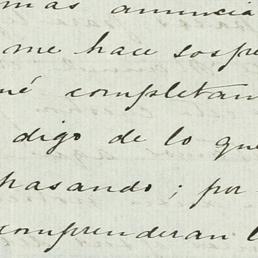 mas anuncia
me hace sospe
ué completan
digo de lo que
pasando; por
comprenderan l